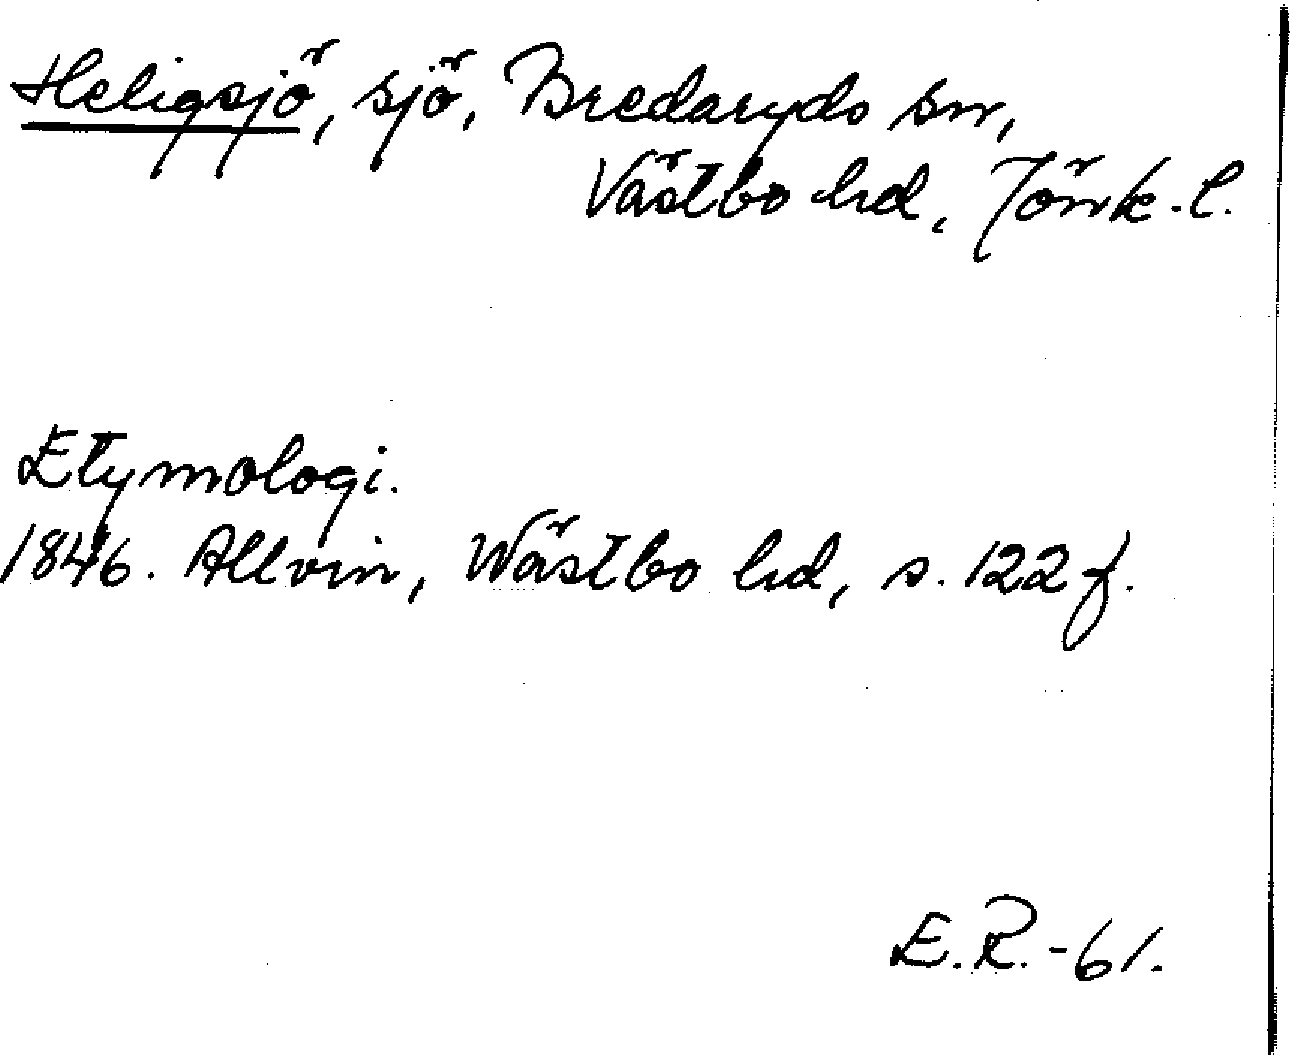 Heligsjö, sjö, Bredaryds sn,
Västbo hd, Jönk. l.
Etymologi.
1846. Allvin, Wästbo hd, s. 122 f.
E. R. -61.